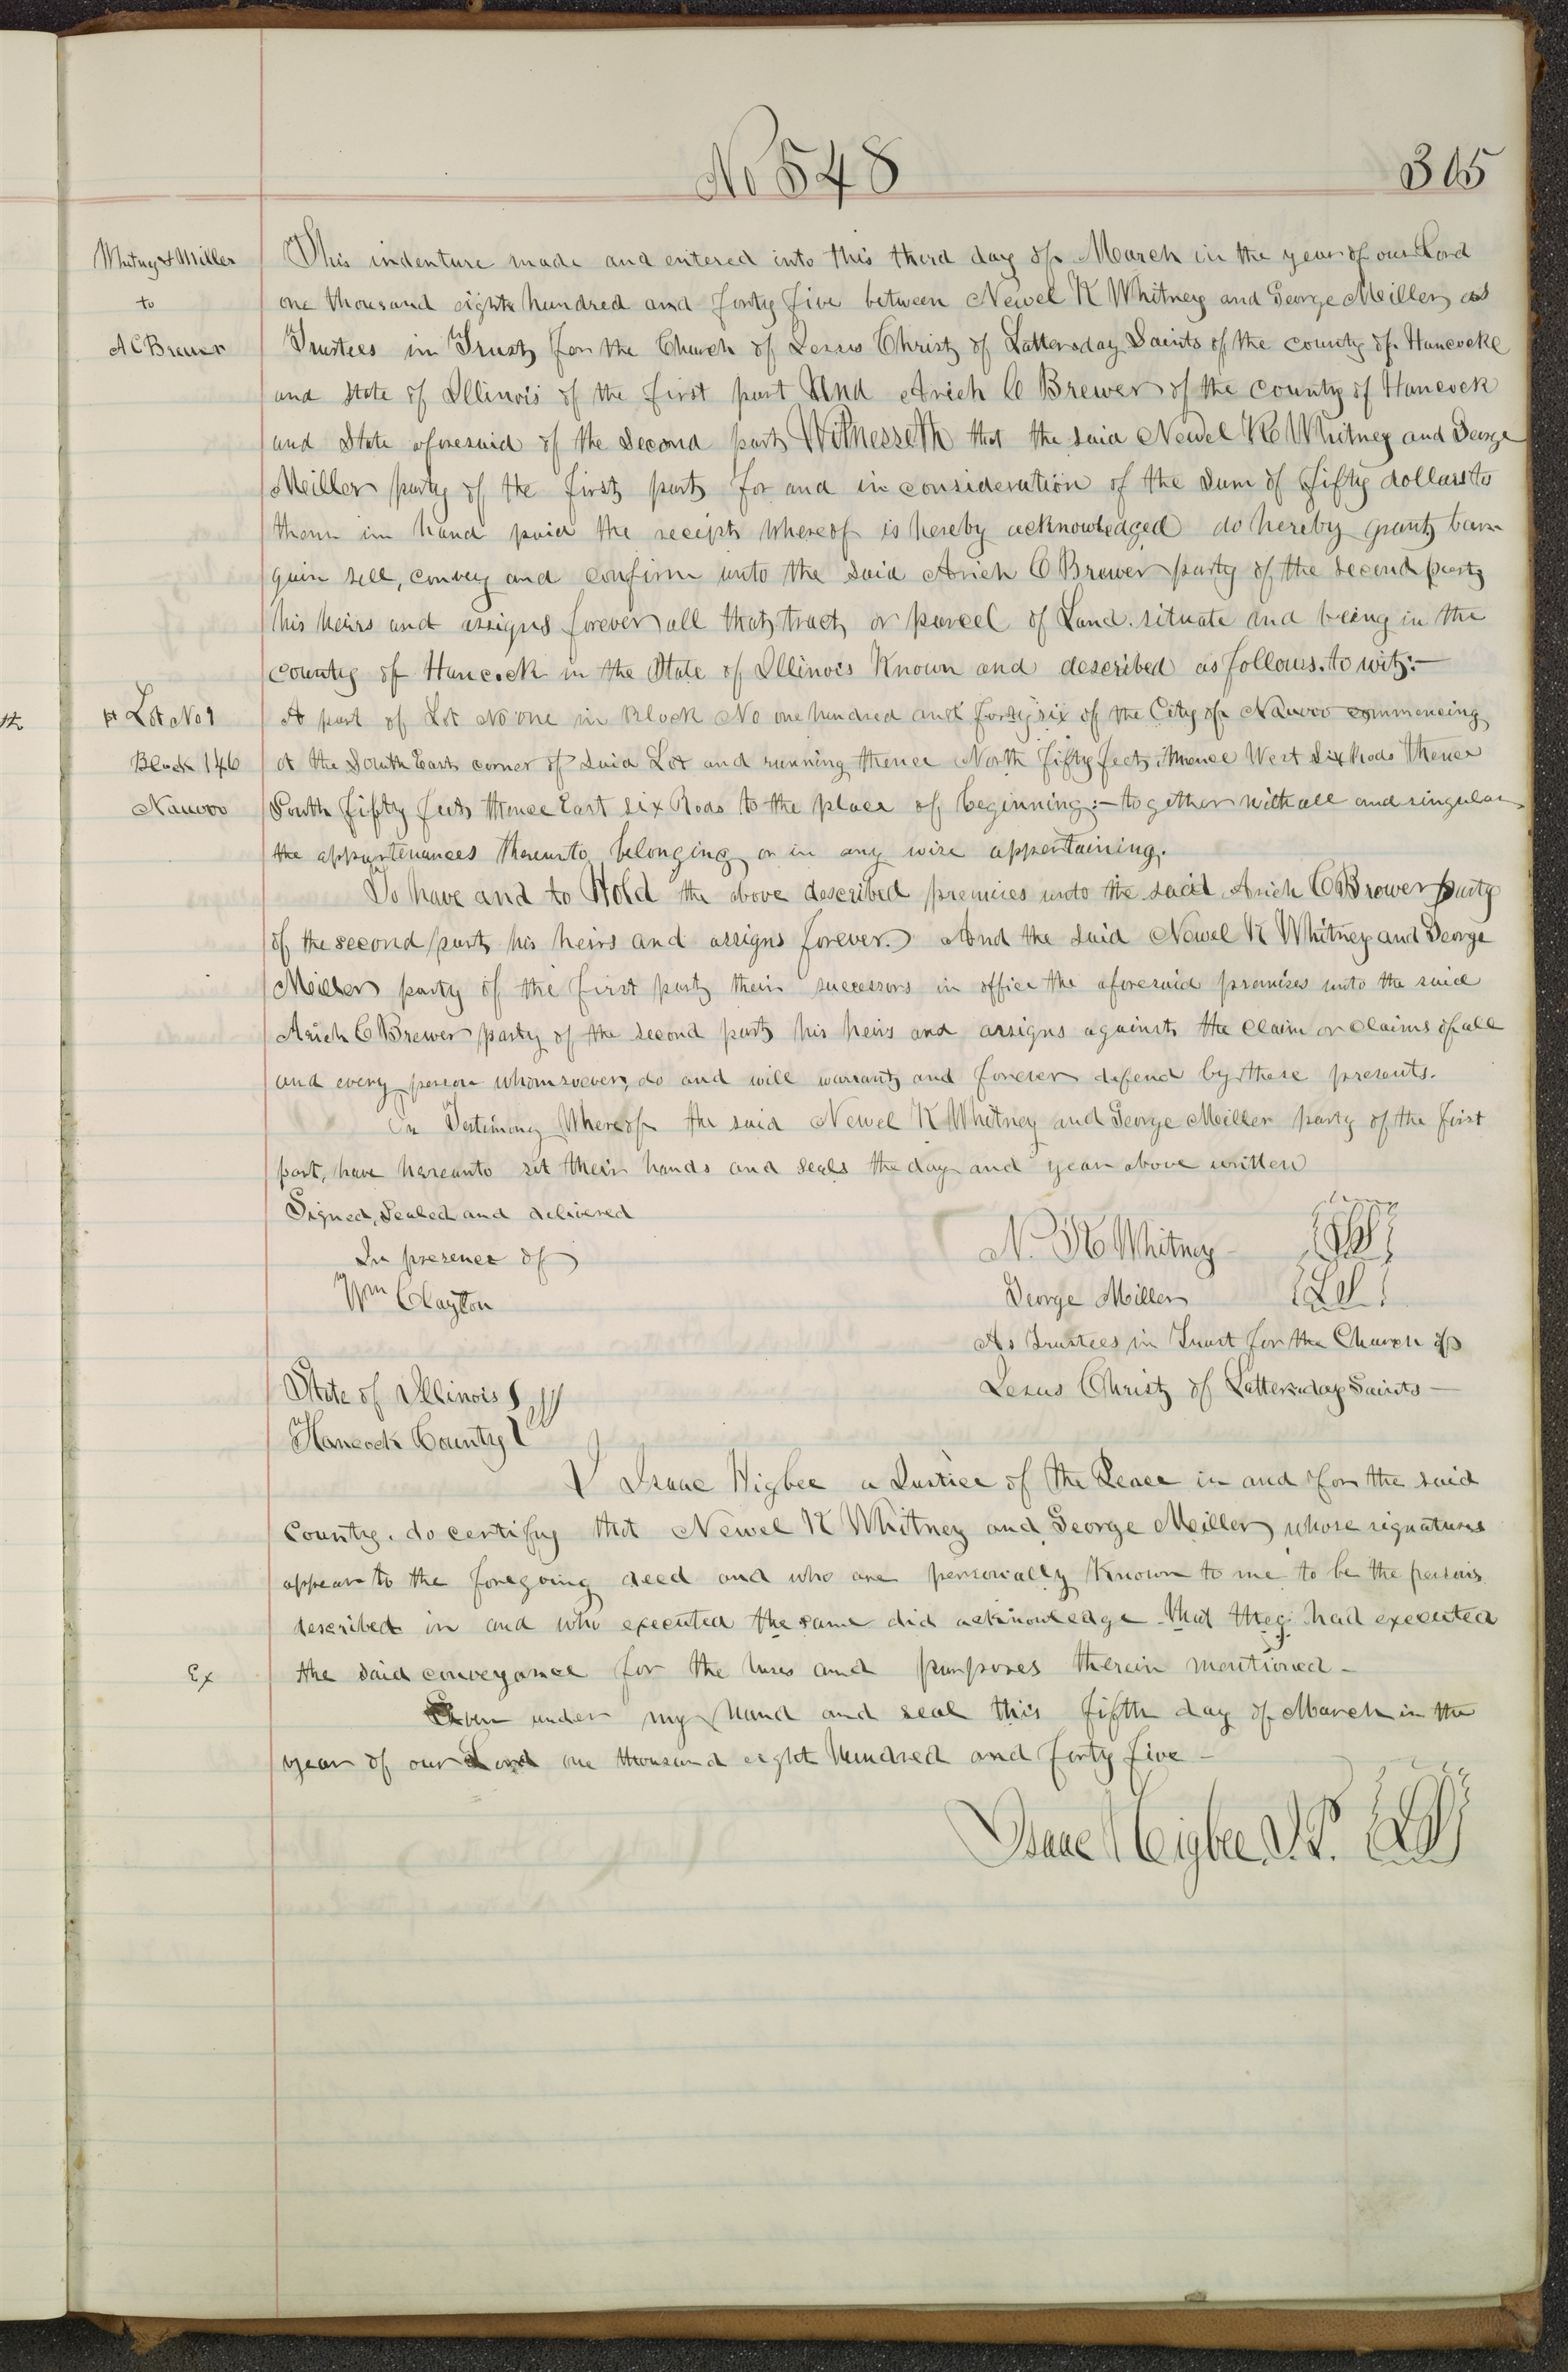 No 548
305
Whitney & Miller
to
A C Brewer
This indenture made and entered into this third day of March in the year of our Lord
one thousand eight hundred and forty five between Newel K Whitney and George Miller as
Trustees in Trust for the Church of Jesus Christ of Latterday Saints of the county of Hancock
and State of Illinois of the first part And Arich C Brewer of the county of Hancock
and State aforesaid of the Second part Witnesseth that the said Newel K Whitney and George
Miller party of the first part for and in consideration of the Sum of fifty dollars to
them in hand paid the receipt whereof is hereby acknowledged do hereby grant bar
gain sell, convey and confirm unto the said Arich C Brewer party of the second part
his heirs and assigns forever all that tract or parcel of Land situate and being in the
county of Hancock in the State of Illinois Known and described as follows. to wit:—
pt Lot No 1
Block 146
Nauvoo
A part of Lot No one in Block No one hundred and forty six of the City of Nauvoo commencing
at the South East corner of said Lot and running thence North fifty feet, thence West six Rods thence
South fifty feet thence East six Rods to the place of beginning:— together with all and singular
the appurtenances thereunto belonging or in any wise appertaining.
To have and to Hold the above described premises unto the said Arich C Brewer party
of the second part his heirs and assigns forever. And the said Newel K Whitney and George
Miller party of the first part their successors in office the aforesaid premises unto the said
Arich C Brewer party of the second part his heirs and assigns against the claim or claims of all
and every person whomsoever, do and will warrant and forever defend by these presents.
In Testimony Whereof the said Newel K Whitney and George Miller party of the first
part, have hereunto set their hands and seals the day and year above written
Signed, Sealed and delivered
In presence of
Wm Clayton
N. K Whitney LS
George Miller LS
As Trustees in Trust for the Church of
Jesus Christ of Latterday Saints —
State of Illinois } ss
Hancock County }
I Isaac Higbee a Justice of the Peace in and for the said
County. do certify that Newel K Whitney and George Miller whose signatures
appear to the foregoing deed and who are personally Known to me to be the persons
described in and who executed the same did acknowledge that they had executed
Ex
the said conveyance for the uses and purposes therein mentioned —
Given under my hand and seal this fifth day of March in the
year of our Lord one thousand eight hundred and forty five —
Isaac Higbee J.P. LS